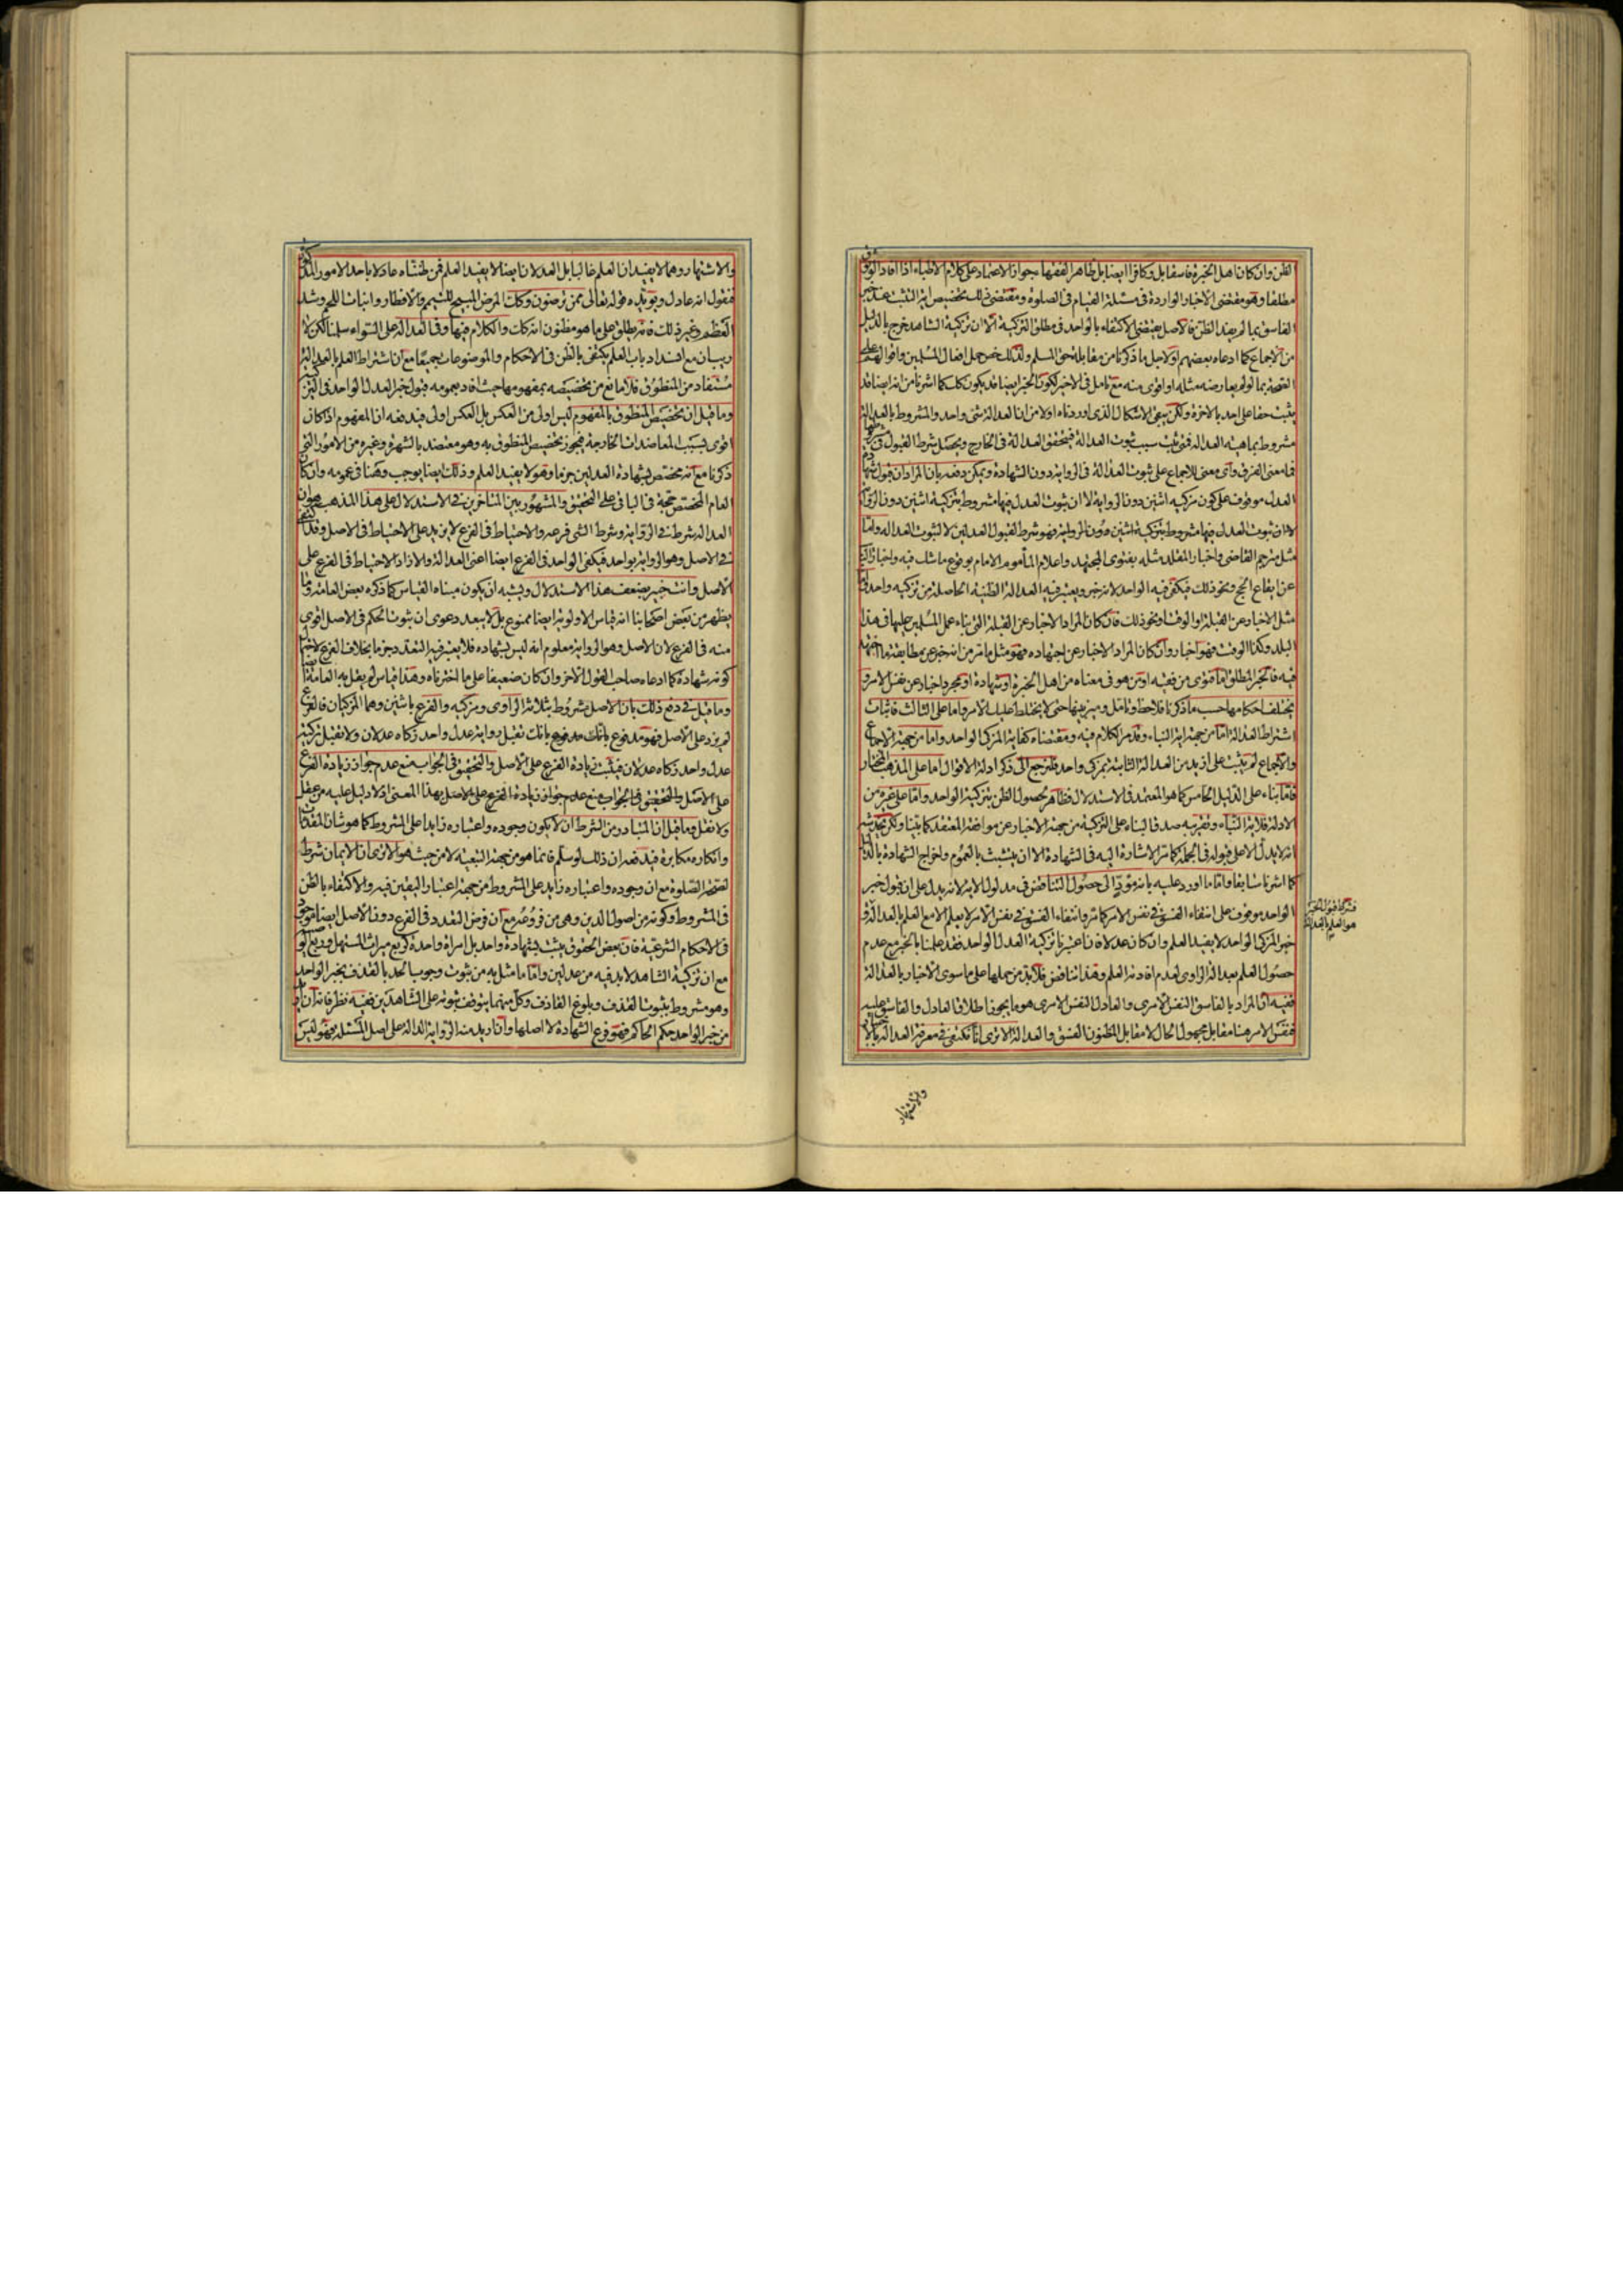 الظن وان كان اهل الخبرة فاسقا بل وكافرا ايضا بل ظاهر الفقهاء جواز الاعتماد على كلام الاطباء اذا افاد الوثوق
مطلقا وهو مقتضى الاخبار الواردة فى مسئلة القيام فى الصلوة ومقتضى ذلك تخصيص اية التثبت عند خبر
الفاسق بما لم يفد الظن فالاصل يقتضى الاكتفاء بالواحد فى مطلق التزكية الا ان تزكية الشاهد خرج بالدليل
من الاجماع كما ادعاه بعضهم او لاجل ما ذكرنا من مقابلته حق المسلم ولذلك خص حمل افعال المسلمين واقوالهم على
الصحة بما لو لم يعارضه مثله او اقوى منه مع تامل فى الاخير لكون الخبر ايضا قد يكون كك كما اشرنا من انه ايضا قد
يثبت حقا على احد بالاخرة ولكن يبقى الاشكال الذى اوردناه اولا من ان العدالة شئ واحد والمشروط بالعدالة
مشروط بماهية العدالة فمتى ثبت سبب ثبوت العدالة فيتحقق العدالة فى الخارج ويحصل شرط القبول
فما معنى الفرق واى معنى للاجماع على ثبوت العدالة فى الرواية دون الشهادة ويمكن دفعه بان المراد ان قبول شهادة
العدل موقوف على كون مزكيه اثنين دون الرواية لا ان ثبوت العدل فيها مشروط بتزكية اثنين دون الرواية
لا ان ثبوت العدل فيها مشروط بتزكية اثنين دون الرواية فهو شرط لقبول العدلين لا لثبوت العدالة واما
مثل مترجم القاضى واخبار المقلد مثله بفتوى المجتهد واعلام المأموم الامام بوقوع ما شك فيه واخبار
عن ايقاع الحج ونحو ذلك فيكفى فيه الواحد لانه خبر ويعتبر فيه العدالة الظنية الحاصلة من تزكية واحد
مثل الاخبار عن القبلة او الوقت او نحو ذلك فان كان المراد الاخبار عن القبلة التى بناء عمل المسلمين عليها فى هذا
البلد وكذا الوقت فهو اخبار وان كان المراد الاخبار عن اجتهاده فهو مثل ما مر من انه خبر عن مطابقته ما اجتهد
فيه فالخبر المطلق اما فتوى من فقيه او من هو فى معناه من اهل الخبرة او شهادة او مجرد اخبار عن نفس الامر و
يختلف احكامها حسب ما ذكرنا فلاحظ وتامل وميز بينها حتى لا يختلط عليك الامر واما على الثالث فاثبات
اشتراط العدالة اما من جهة اية النباء وقد مر الكلام فيه ومقتضاه كفاية المزكى الواحد واما من جهة الاجماع
والاجماع لم يثبت على ازيد من العدالة الثابتة بمزكى واحد فلنرجع الى ذكر ادلة الاقوال اما على المذهب المختار
فاما بناء على الدليل الخامس كما هو المعتمد فى الاستدلال فظاهر لحصول الظن بتزكية الواحد واما على غيره من
الادلة فلاية النباء وتقريبه صدق النباء على التزكية من جهة الاخبار عن موافقة المعتقد كما بينا ولكن يخدشه
انه لا يدل الا على قبوله فى الجملة كما مر الاشارة اليه فى الشهادة الا ان يتشبث بالعموم واخراج الشهادة بالدليل
كما اشرنا سابقا واما ما اورد عليه بانه مؤد الى حصول التناقض فى مدلول الاية لانه يدل على ان قبول خبر
الواحد موقوف على انتفاء الفسق فى نفس الامر كما مر وانتفاء الفسق فى نفس الامر لا يعلم الا مع العلم بالعدالة
خبر المزكى الواحد لا يفيد العلم وان كان عدلا فان اعتبرنا تزكية العدل الواحد فقد علمنا بالخبر مع عدم
حصول العلم بعدالة الراوى لعدم افادته العلم وهذا تناقض فلا بد من حملها على ما سوى الاخبار بالعدالة
ففيه ان المراد بالفاسق النفس الامرى والعادل النفس الامرى هو ما يجوز اطلاق العادل والفاسق عليه
فنفس الامر هنا مقابل مجهول الحال لا مقابل المظنون الفسق والعدالة الا ترى انا نكتفى فى معرفة العدالة
فشرط قبول الخبر
هو العلم بالعدالة
والاشتهار
والاشتهار وهما لا يفيدان العلم غالبا بل العدلان ايضا لا يفيد العلم فمن ظنناه عادلا باحد الامور المذكورة
فنقول انه عادل ويؤيده قوله تعالى ممن ترضون وكذلك المرض المبيح للتيمم والافطار وانبات اللحم وشد
العظم وغير ذلك فانه يطلق على ما هو مظنون انه كك والكلام فيها وفى العدالة على السواء سلمنا لكن لا
ريب ان مع انسداد باب العلم يكتفى بالظن فى الاحكام والموضوعات جميعا مع ان اشتراط العلم بالعدالة
مستفاد من المنطوق فلا مانع من تخصيصه بمفهومها حيث افاد بعمومه قبول خبر العدل الواحد فى التزكية
وما قيل ان تخصيص المنطوق بالمفهوم ليس اولى من العكس بل العكس اولى فيدفعه ان المفهوم اذا كان
اقوى بسبب المعاضدات الخارجة فيجوز تخصيص المنطوق به وهو معتضد بالشهرة وغيره من الامور التى
ذكرنا مع انه مختص بشهادة العدلين جزما وهو لا يفيد العلم وذلك ايضا يوجب وهنا فى عمومه وان كان
العام المخصص حجة فى الباقى على التحقيق والمشهور بين المتاخرين فى الاستدلال على هذا المذهب هو ان
العدالة شرط فى الرواية وشرط الشئ فرعه والاحتياط فى الفرع لا يزيد على الاحتياط فى الاصل وقد اكتفى
فى الاصل وهو الرواية بواحد فيكفى الواحد فى الفرع ايضا اعنى العدالة والا زاد الاحتياط فى الفرع على
الاصل وانت خبير بضعف هذا الاستدلال ويشبه ان يكون مبناه القياس كما ذكره بعض العامة وما
يظهر من بعض اصحابنا انه قياس الاولوية ايضا ممنوع بل لا يبعد دعوى ان ثبوت الحكم فى الاصل اقوى
منه فى الفرع لان الاصل وهو الرواية معلوم انه ليس بشهادة فلا يعتبر فيه التعدد جزما بخلاف الفرع لاحتمال
كونه شهادة كما ادعاه صاحب القول الاخر وان كان ضعيفا على ما اخترناه وهذا قياس لم يقل به العامة ايضا
وما قيل فى دفع ذلك بان الاصل مشروط بثلاثة الراوى ومزكييه والفرع باثنين وهما المزكيان فالفرع
لم يزد على الاصل فهو مدفوع بانك تقبل رواية عدل واحد زكاه عدلان ولا تقبل تزكية
عدل واحد زكاه عدلان فيثبت زيادة الفرع على الاصل والتحقيق فى الجواب منع عدم جواز زيادة الفرع
على الاصل والتحقيق فى الجواب منع عدم جواز زيادة الفرع على الاصل بهذا المعنى اذ لا دليل عليه من عقل
ولا نقل وما قيل ان المتبادر من الشرط ان لا يكون وجوده واعتباره زايدا على المشروط كما هو شان المقدمات
وانكاره مكابرة فيدفعه ان ذلك لو سلم فانما هو من جهة التبعية لا من حيث هو الا ترى ان الايمان شرط
لصحة الصلوة مع ان وجوده واعتباره زايد على المشروط من جهة اعتبار اليقين فيه والاكتفاء بالظن
فى المشروط وكونه من اصول الدين وهى من فروعه مع ان فرض التعدد فى الفرع دون الاصل ايضا موجود
فى الاحكام الشرعية فان بعض الحقوق يثبت بشهادة واحد بل امراة واحدة كربع ميراث المستهل وربع الوصية
مع ان تزكية الشاهد لا بد فيه من عدلين واما ما مثل به من ثبوت وجوب الحد بالقذف بخبر الواحد
وهو مشروط بثبوت القذف وبلوغ القاذف وكل منهما يتوقف ثبوته على الشاهدين ففيه نظر فانه ان اريد
من خبر الواحد حكم الحاكم فهو فرع الشهادة لا اصلها وان اريد منه الرواية الدالة على اصل المسئلة فهو ليس